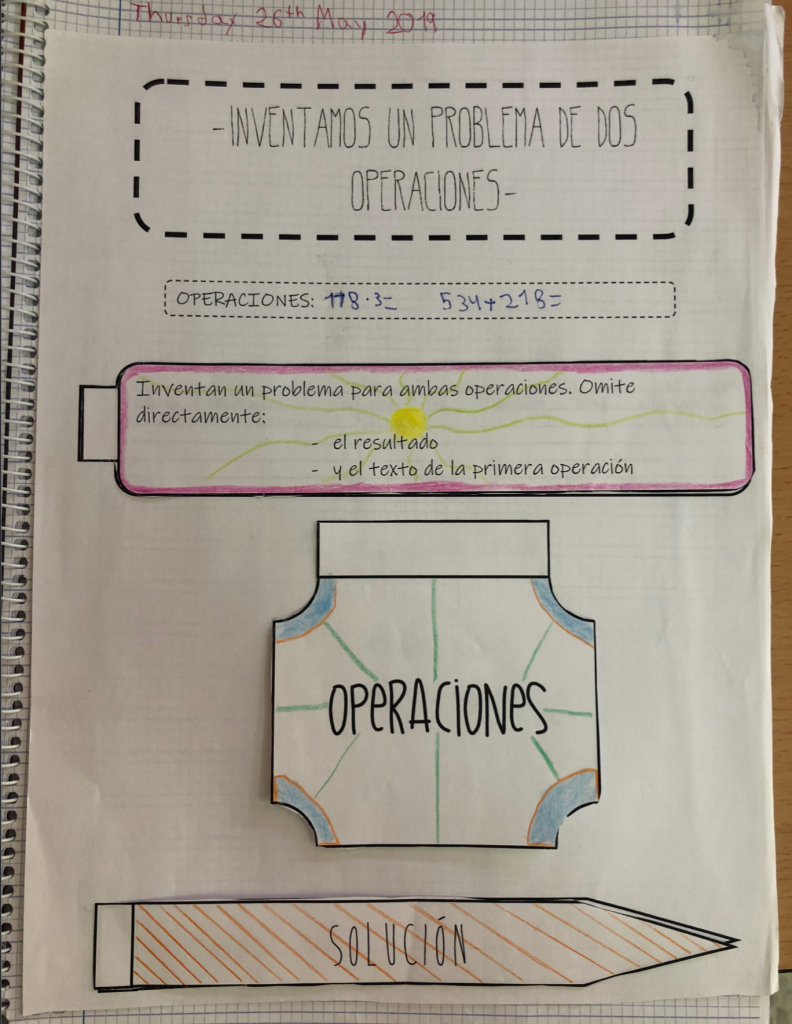 Thursday 26th May 2019
-INVENTAMOS UN PROBLEMA DE DOS
OPERACIONES-
OPERACIONES: 118·3= 534+218=
Inventan un problema para ambas operaciones. Omite
directamente:
- el resultado
- y el texto de la primera operación
OPERACIONES
SOLUCIÓN